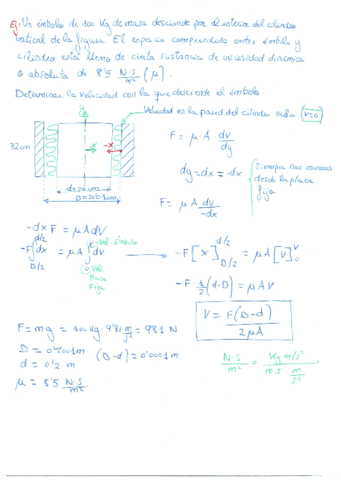 Ej: Un émbolo de 100 Kg de masa desciende por el interior del cilindro
vertical de la figura. El espacio comprendido entre émbolo y
cilindro está lleno de cierta sustancia de viscosidad dinámica
o absoluta de 8'5 N·S/m² (μ).
Determinar la velocidad con la que desciende el émbolo.
Velocidad en la pared del cilindro nula (v=0)
y
x
32cm
d=20cm
D=20'01cm
F = μ·A·dv/dy
dy=dx=-dx
Siempre nos movemos
desde la placa
fija
F = μ A dv/-dx
-dx F = μ A dv
-F ∫ D/2 d/2 dx = μ A ∫ 0 V dv
V=Vel. émbolo
Vel.
Placa
Fija
-F [x] D/2 d/2 = μ A [V] 0 V
-F·1/2(d-D) = μ A V
V = F(D-d)/2μA
F = mg = 100Kg·9'81 m/s² = 981 N
D = 0'2001m
(D-d) = 0'0001m
d = 0'2 m
μ = 8'5 N·S/m²
N·S/m² = Kg m/s²/m·s m/s²